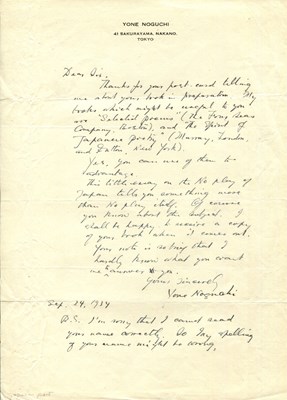 YONE NOGUCHI
41 SAKURAYAMA, NAKANO,
TOKYO
Dear Sir,
Thanks for your post-card telling
me about your book in preparation. My
books which might be useful to you
are "Selected Poems" (the Four Seas
Company, Boston), and "The Spirit of
Japanese Poetry" (Murray, London,
and Dutton, New York).
Yes, you can use of them to
advantage.
This little essay on the No play of
Japan tells you something more
than No play itself. Of course
you know about the subject. I
shall be happy to receive a copy
of your book when it comes out.
Your note is so tiny that I
hardly know what you want
me answer to you.
Yours sincerely
Yone Noguchi
Sep. 24, 1934
P.S. I'm sorry that I cannot read
your name correctly. So my spelling
of your name might be wrong.